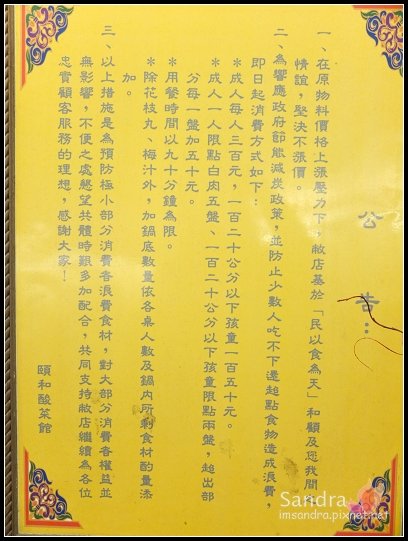 公告：
一、在原物料價格上漲壓力下，敝店基於「民以食為天」和顧及您我間之
情誼，堅決不漲價。
二、為響應政府節能減炭政策，並防止少數人吃不下還超點食物造成浪費，
即日起消費方式如下：
＊成人每人三百元，一百二十公分以下孩童一百五十元。
＊成人一人限點白肉五盤、一百二十公分以下孩童限點兩盤，超出部
分每一盤加五十元。
＊用餐時間以九十分鐘為限。
＊除花枝丸、梅汁外，加鍋底數量依各桌人數及鍋內所剩食材酌量添
加。
三、以上措施是為預防極小部分消費者浪費食材，對大部分消費者權益並
無影響，不便之處懇望共體時艱多加配合，共同支持敝店繼續為各位
忠實顧客服務的理想，感謝大家！
頤和酸菜館
Sandra
imsandra.pixnet.net